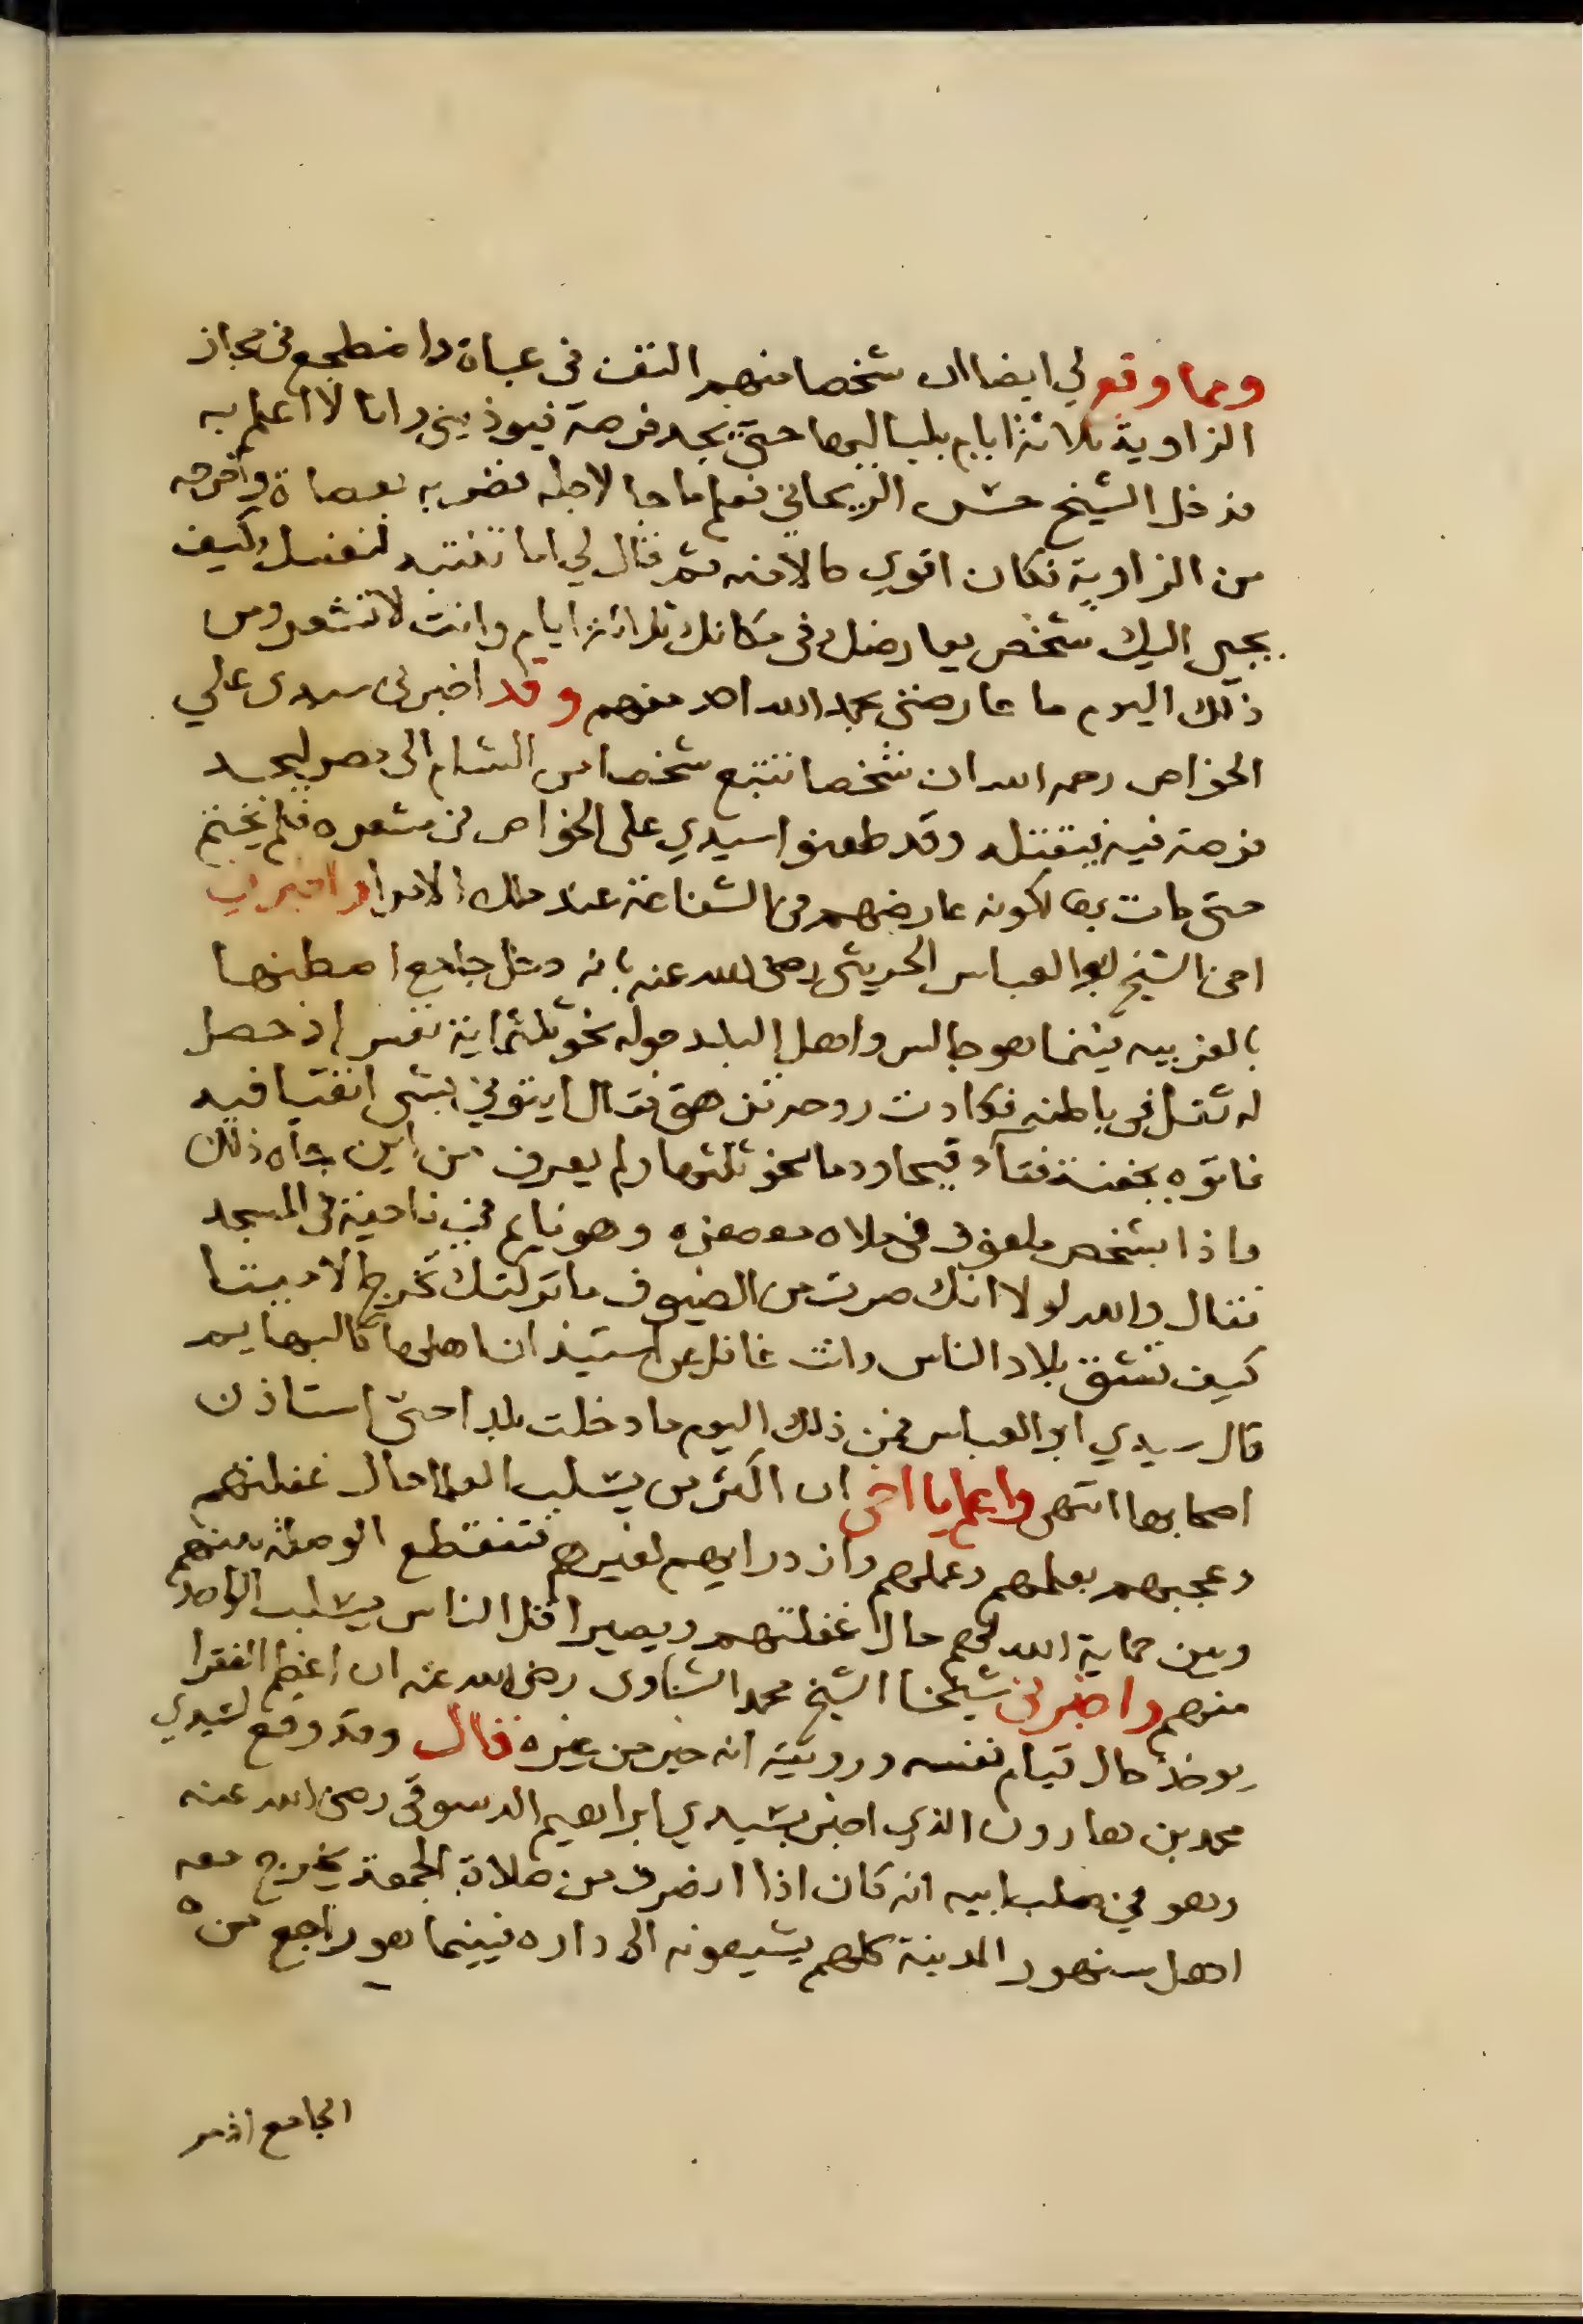 ومما وقع لي ايضا ان شخصا منهم التف في عباة واضطجع في مجاز
الزاوية ثلاثة ايام بلياليها حتى يجد فرصة فيوذيني وانا لا اعلم به
فدخل الشيخ حسن الريحاني فعلم ما جا لاجله فضربه بعصاة واخرجه
من الزاوية فكان اقوى حالا منه ثم قال لي اما تنتبه لنفسك كيف
يجي اليك شخص يعارضك في مكانك ثلاثة ايام وانت لا تشعر ومن
ذلك اليوم ما عارضني بحمد الله احد منهم وقد اخبرني سيدي علي
الخواص رحمه الله ان شخصا تتبع شخصا من الشام الى مصر ليجد
فرصة فيه فيقتله وقد طعنوا سيدي على الخواص في مشعره فلم يختم
حتى مات بها لكونه عارضهم في الشفاعة عند ملك الامرا واخبرني
اخي الشيخ ابو العباس الحريثي رضى الله عنه بانه دخل جامع اصطنها
بالغربيه فبينما هو جالس واهل البلد حوله نحو ثلثماية نفس اذ حصل
له ثقل في باطنه فكادت روحه تزهق فقال ايتوني بشي اتقيا فيه
فاتوه بجفنة فتقاء قيحا ودما نحو ثلثها ولم يعرف من اين جاه ذلك
واذا بشخص ملفوف في ملاه معصفره وهو نايم في ناحية في المسجد
فقال والله لولا انك صرت من الضيوف ما تركتك تخرج الا ميتا
كيف تشق بلاد الناس وانت غافل عن استيذان اهلها كالبهايم
قال سيدي ابو العباس فمن ذلك اليوم ما دخلت بلدا حتى استاذن
اصحابها انتهى واعلم يا اخى ان اكثر من يسلب العلما حال غفلتهم
وعجبهم بعلمهم وعملهم وازدرايهم لغيرهم فتنقطع الوصلة بينهم
وبين حماية الله لهم حال غفلتهم ويصير اقل الناس يسلب الواحد
منهم واخبرني شيخنا الشيخ محمد الشناوى رضى الله عنه ان اعظم الفقرا
يوخذ حال قيام نفسه ورويته انه خير من غيره قال وقد وقع لسيدي
محمد بن هارون الذي اخبر بسيدي ابراهيم الدسوقى رضى الله عنه
وهو في صلب ابيه انه كان اذا انصرف من صلاة الجمعة يخرج معه
اهل سنهور المدينة كلهم يشيعونه الى داره فبينما هو راجع من
الجامع اذ مر